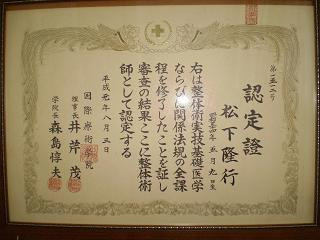 認定證
松下隆行
右は整体術実技基礎医学
ならびに関係法規の全課
程を修了したことを証し
審査の結果ここに整体術
師として認定する
平成元年八月三日
国際療術学院
理事長 井芹茂
学院長 森島惇夫